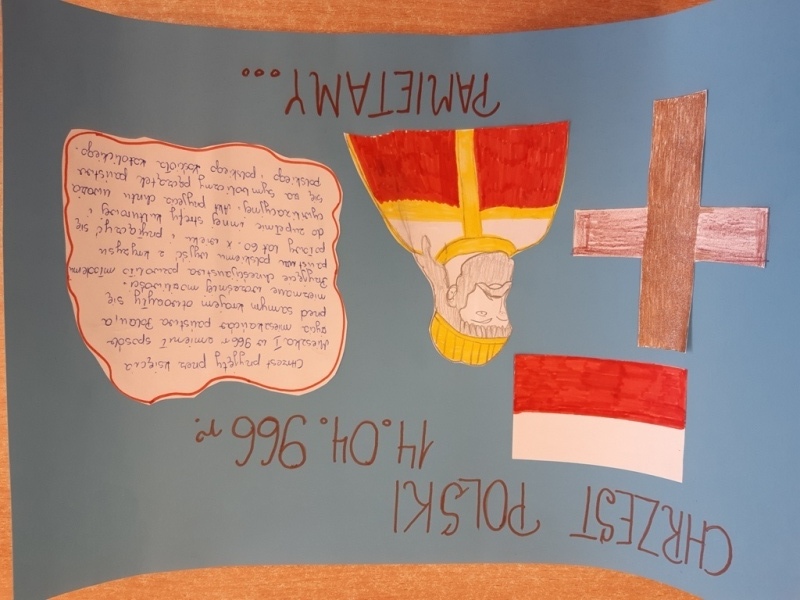 CHRZEST POLSKI
14.04.966 r.
Chrzest przyjęty przez księcia
Mieszka I w 966 r. zmienił sposób
życia mieszkańców państwa Polan, a
przed samym krajem otworzyły się
nieznane wcześniej możliwości.
Przyjęcie chrześcijaństwa pozwoliło młodemu
państwu polskiemu wyjść z kryzysu
połowy lat 60. X wieku i przyłączyć się
do zupełnie innej strefy kulturowej i
cywilizacyjnej. Akt przyjęcia chrztu uważa
się za symboliczny początek państwa
polskiego i polskiego kościoła katolickiego.
PAMIĘTAMY...